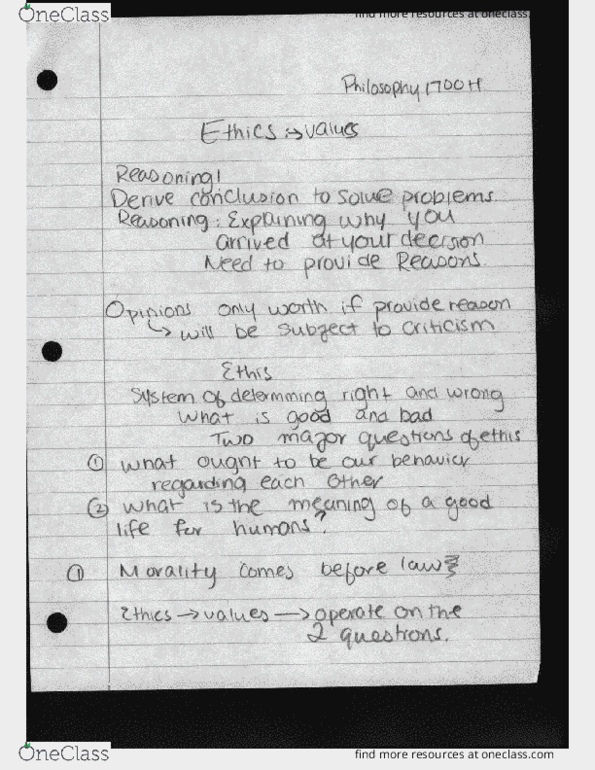 OneClass
find more resources at oneclass.
Philosophy 1700H
Ethics :→ values
Reasoning!
Derive conclusion to solve problems.
Reasoning: Explaining why you
arrived at your decision
Need to provide Reasons.
Opinions only worth if provide reason
↳ will be subject to criticism
Ethis
System of determning right and wrong
What is good and bad
Two major questions of ethis
① what ought to be our behavior
regarding each other
② what is the meaning of a good
life for humans?
① Morality comes before law
Ethics → values → operate on the
2 questions.
OneClass
find more resources at oneclass.com